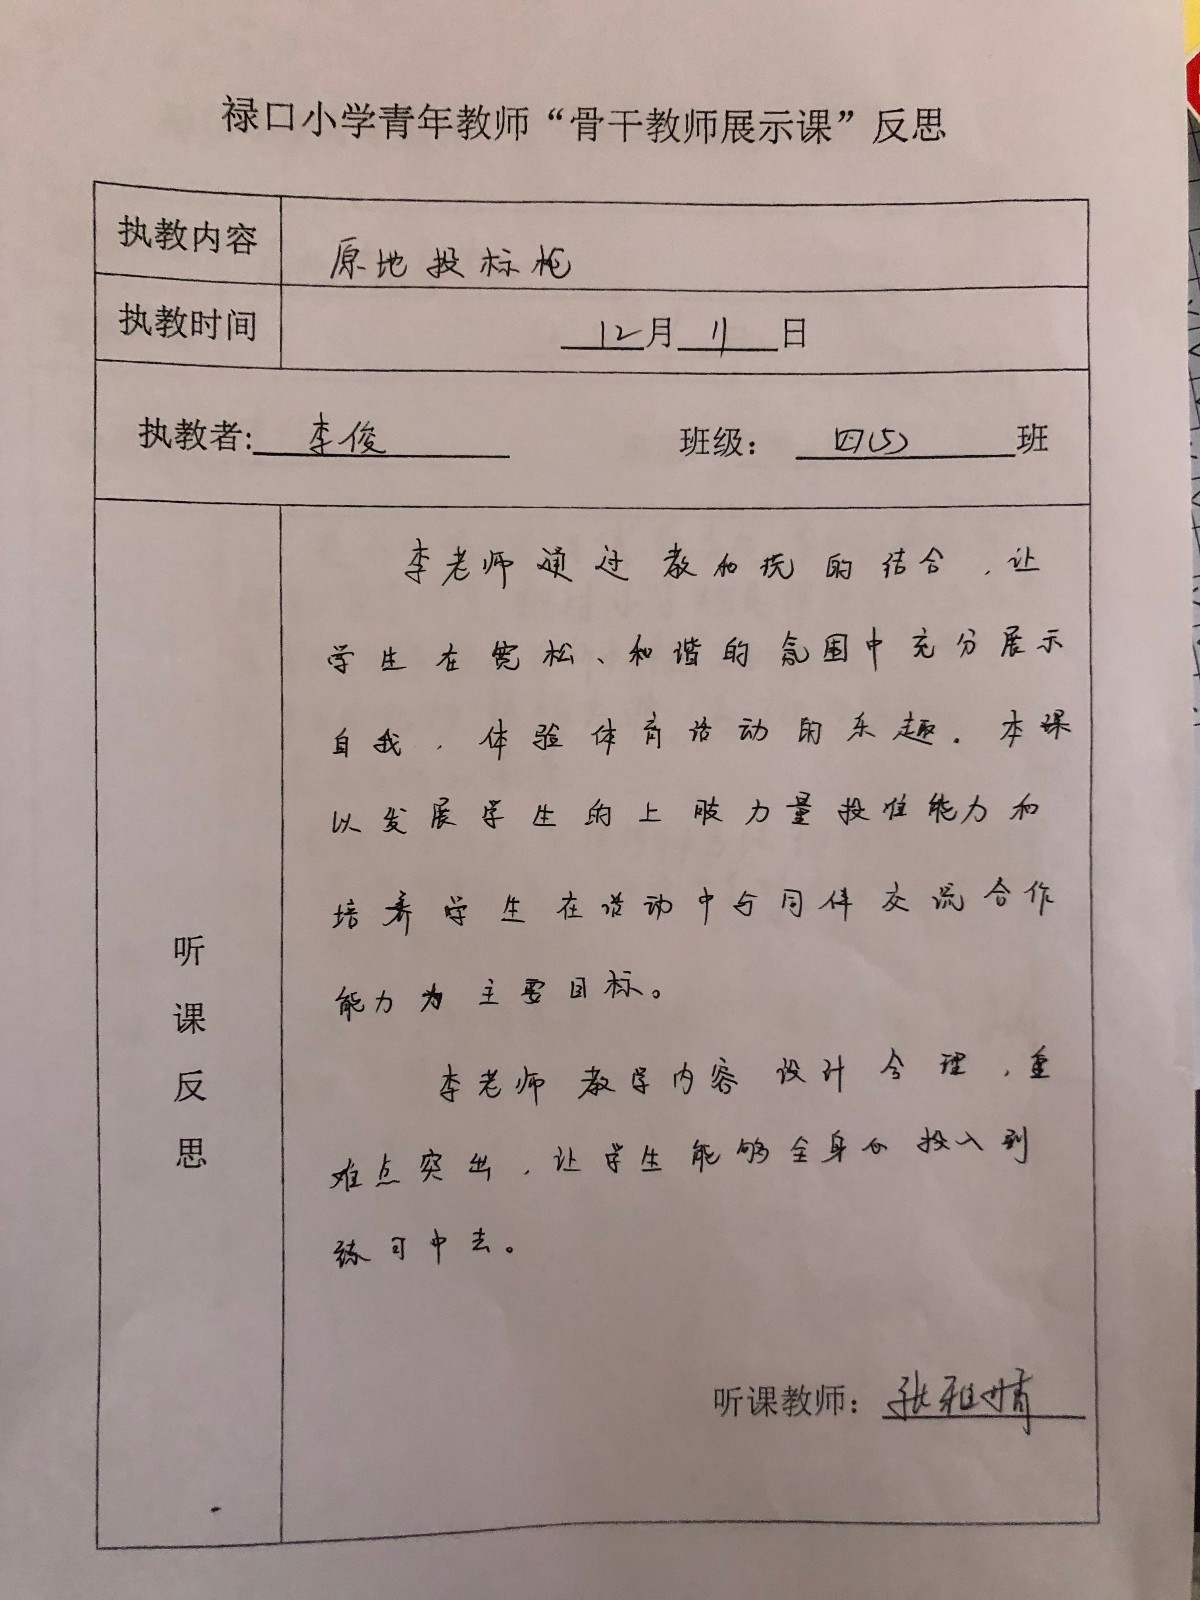 禄口小学青年教师“骨干教师展示课”反思
执教内容
原地投标枪
执教时间
12月11日
执教者: 李俊 班级: 四(5)班
听课反思
李老师通过教和玩的结合，让
学生在宽松、和谐的氛围中充分展示
自我，体验体育活动的乐趣。本课
以发展学生的上肢力量投准能力和
培养学生在活动中与同伴交流合作
能力为主要目标。
李老师教学内容设计合理，重
难点突出，让学生能够全身心投入到
练习中去。
听课教师: 张雅婧